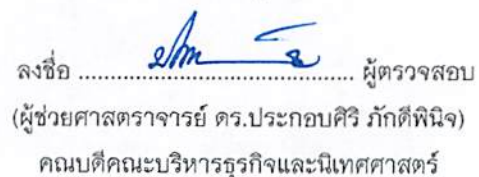 ลงชื่อ ........................................ ผู้ตรวจสอบ
(ผู้ช่วยศาสตราจารย์ ดร.ประกอบศิริ ภักดีพินิจ)
คณบดีคณะบริหารธุรกิจและนิเทศศาสตร์